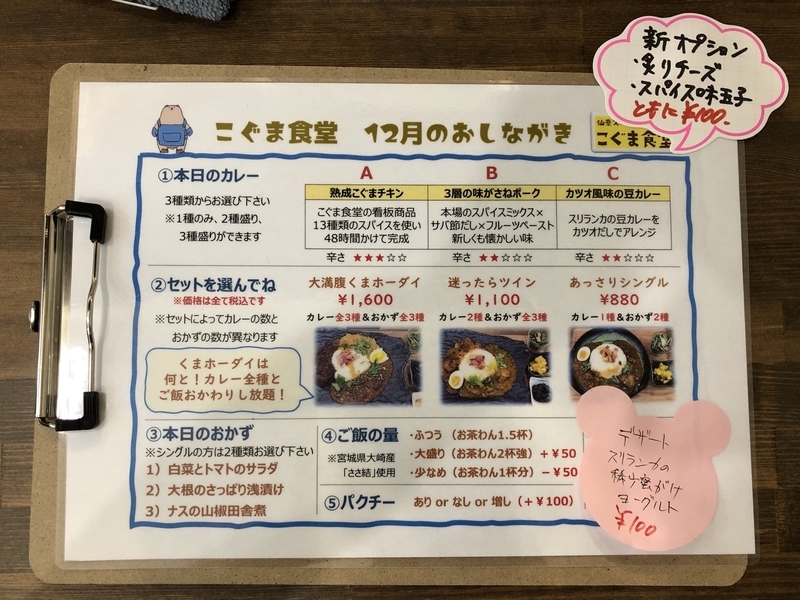 新オプション
・炙りチーズ
・スパイス味玉子
ともに¥100-
こぐま食堂 12月のおしながき
こぐま食堂
①本日のカレー
3種類からお選び下さい
※1種のみ、2種盛り、
3種盛りができます
A
熟成こぐまチキン
こぐま食堂の看板商品
13種類のスパイスを使い
48時間かけて完成
辛さ ★★★☆☆
B
3層の味がさねポーク
本場のスパイスミックス×
サバ節だし×フルーツペースト
新しくも懐かしい味
辛さ ★★☆☆☆
C
カツオ風味の豆カレー
スリランカの豆カレーを
カツオだしでアレンジ
辛さ ★★☆☆☆
②セットを選んでね
※価格は全て税込です
※セットによってカレーの数と
おかずの数が異なります
くまホーダイは
何と!カレー全種と
ご飯おかわりし放題!
大満腹くまホーダイ
¥1,600
カレー全3種&おかず全3種
迷ったらツイン
¥1,100
カレー2種&おかず全3種
あっさりシングル
¥880
カレー1種&おかず2種
③本日のおかず
※シングルの方は2種類お選び下さい
1)白菜とトマトのサラダ
2)大根のさっぱり浅漬け
3)ナスの山椒田舎煮
④ご飯の量
※宮城県大崎産
「ささ結」使用
・ふつう(お茶わん1.5杯)
・大盛り(お茶わん2杯強)+¥50
・少なめ(お茶わん1杯分)−¥50
⑤パクチー
あり or なし or 増し(+¥100)
デザート
スリランカの
椰子蜜がけ
ヨーグルト
¥100